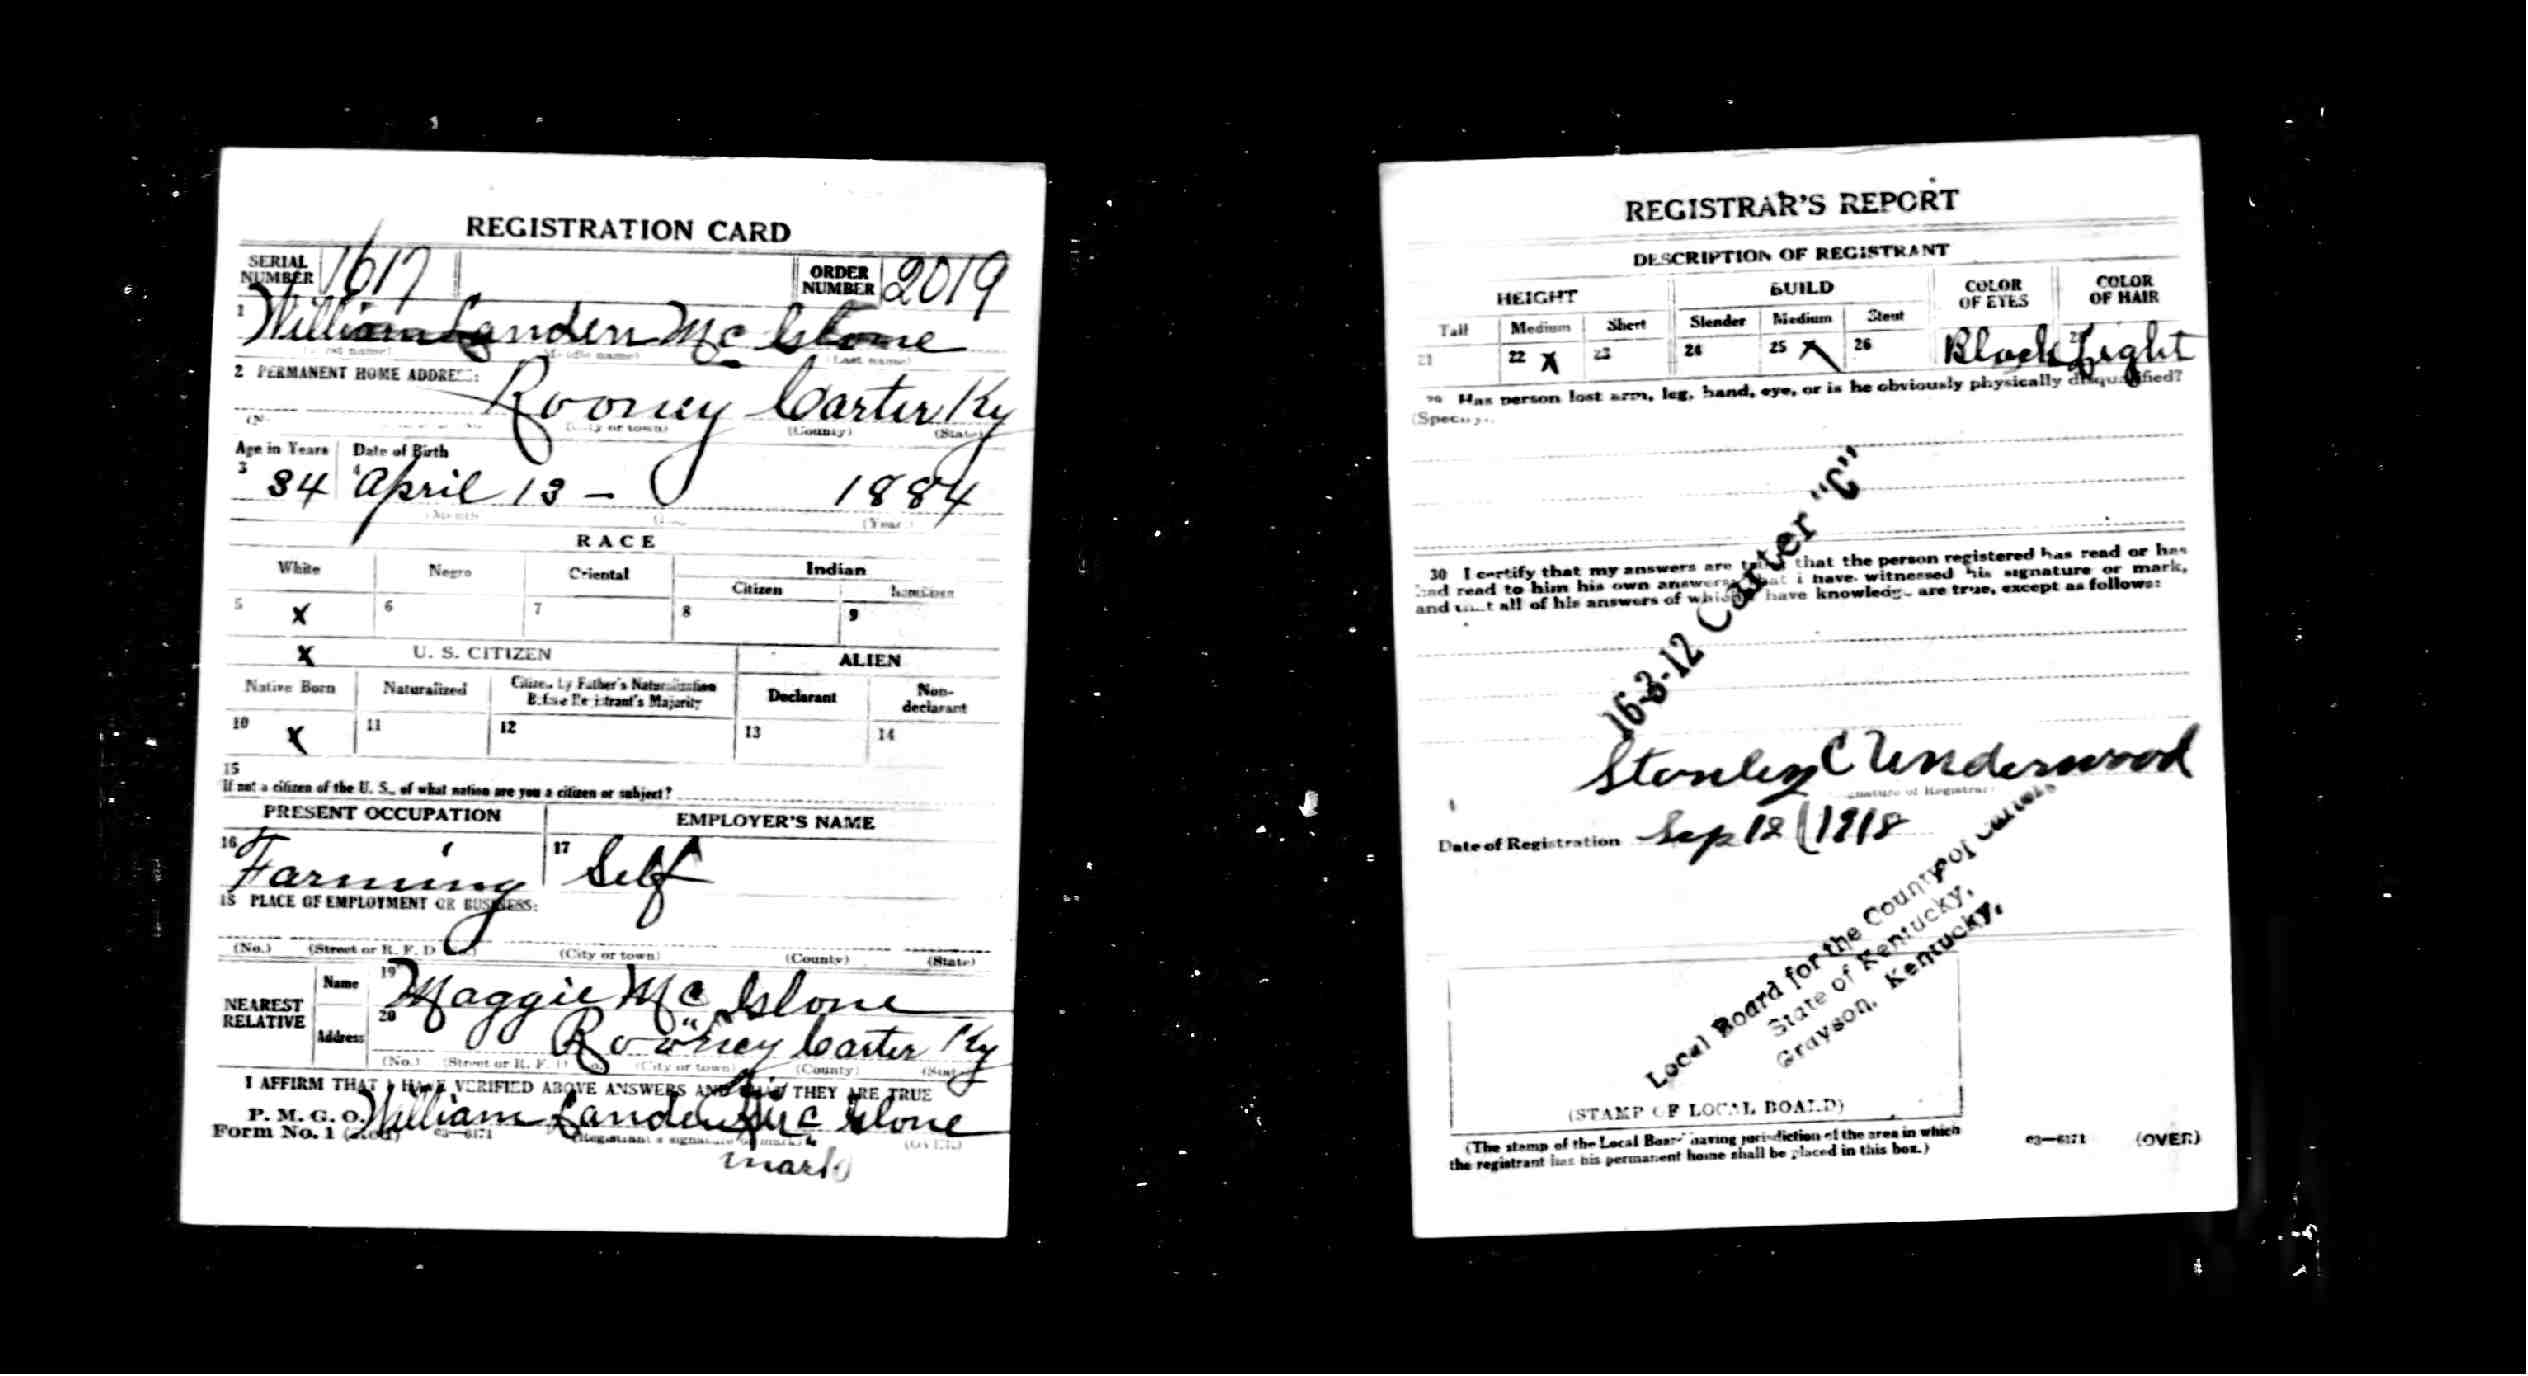 REGISTRATION CARD
SERIAL NUMBER 1617 ORDER NUMBER 2019
1 William Landen Mc Glone
(First name) (Middle name) (Last name)
2 PERMANENT HOME ADDRESS:
Rooney Carter Ky
(City or town) (County) (State)
Age in Years Date of Birth
3 34 4 April 13 - 1884
(Month) (Year)
RACE
White Negro Oriental Indian
Citizen Noncitizen
5 X 6 7 8 9
X U. S. CITIZEN ALIEN
Native Born Naturalized Citizen by Father's Naturalization Before Registrant's Majority Declarant Non-declarant
10 X 11 12 13 14
15
If not a citizen of the U. S., of what nation are you a citizen or subject?
PRESENT OCCUPATION EMPLOYER'S NAME
16 Farming 17 Self
18 PLACE OF EMPLOYMENT OR BUSINESS:
(No.) (Street or R. F. D. No.) (City or town) (County) (State)
NEAREST RELATIVE Name 19 Maggie Mc Glone
Address 20 Rooney Carter Ky
(No.) (Street or R. F. D. No.) (City or town) (County) (State)
I AFFIRM THAT I HAVE VERIFIED ABOVE ANSWERS AND THAT THEY ARE TRUE
his
P. M. G. O. William Landen Mc Glone
Form No. 1 (Red) 03—6171 (Registrant's signature or mark) (OVER)
mark
REGISTRAR'S REPORT
DESCRIPTION OF REGISTRANT
HEIGHT BUILD COLOR OF EYES COLOR OF HAIR
Tall Medium Short Slender Medium Stout
21 22 X 23 24 25 X 26 Black Light
29 Has person lost arm, leg, hand, eye, or is he obviously physically disqualified?
(Specify.)
30 I certify that my answers are true, that the person registered has read or has
had read to him his own answers, that I have witnessed his signature or mark,
and that all of his answers of which I have knowledge are true, except as follows:
16-3-12 Carter "C"
Stanley C Underwood
(Signature of Registrar)
Date of Registration Sep 12 1918
Local Board for the County of Carter,
State of Kentucky,
Grayson, Kentucky,
(STAMP OF LOCAL BOARD)
(The stamp of the Local Board having jurisdiction of the area in which
the registrant has his permanent home shall be placed in this box.)
03—6171 (OVER)